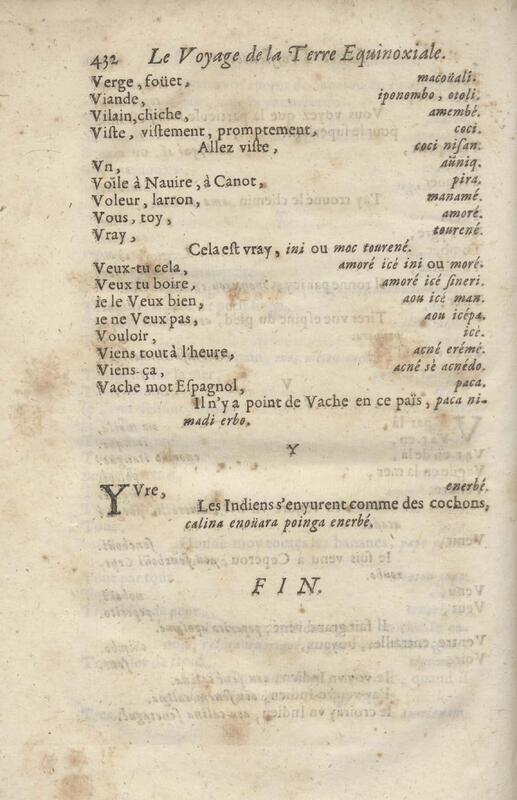 432 Le Voyage de la Terre Equinoxiale.
Verge, foüet, macoüali.
Viande, iponombo, otoli.
Vilain, chiche, amembé.
Viſte, viſtement, promptement, coci.
Allez viſte, coci niſan.
Vn, aüniq.
Voïle à Nauire, à Canot, pira.
Voleur, larron, manamé.
Vous, toy, amoré.
Vray, tourené.
Cela eſt vray, ini ou moc tourené.
Veux-tu cela, amoré icé ini ou moré.
Veux tu boire, amoré icé ſineri.
ie le Veux bien, aou icé man.
ie ne Veux pas, aou icépa.
Vouloir, icé.
Viens tout à l'heure, acné erémé.
Viens-ça, acné sè acnédo.
Vache mot Eſpagnol, paca.
Il n'y a point de Vache en ce païs, paca ni-
madi erbo.
Y
YVre, enerbé.
Les Indiens s'enyurent comme des cochons,
calina enoüara poinga enerbé.
FIN.